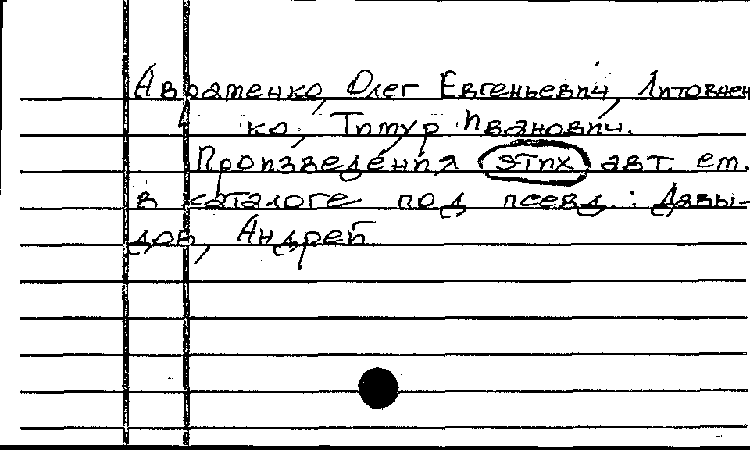 Авраменко, Олег Евгеньевич, Литовчен
ко, Тимур Иванович.
Произведения этих авт. см.
в каталоге под псевд.: Давы-
дов, Андрей